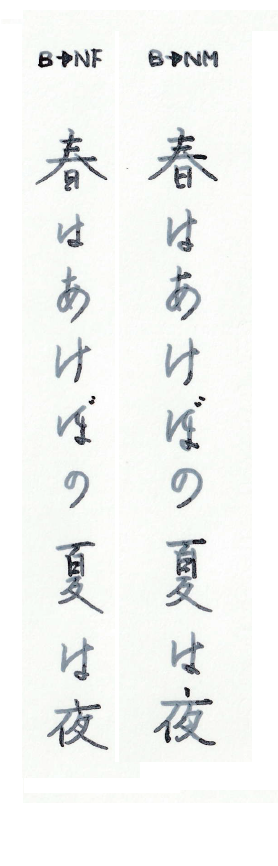 B→NF
春はあけぼの夏は夜
B→NM
春はあけぼの夏は夜